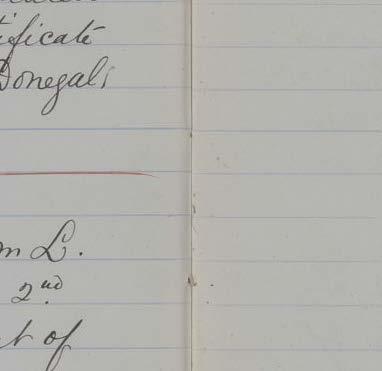 tificate
Donegal,
m L.
2nd
t of